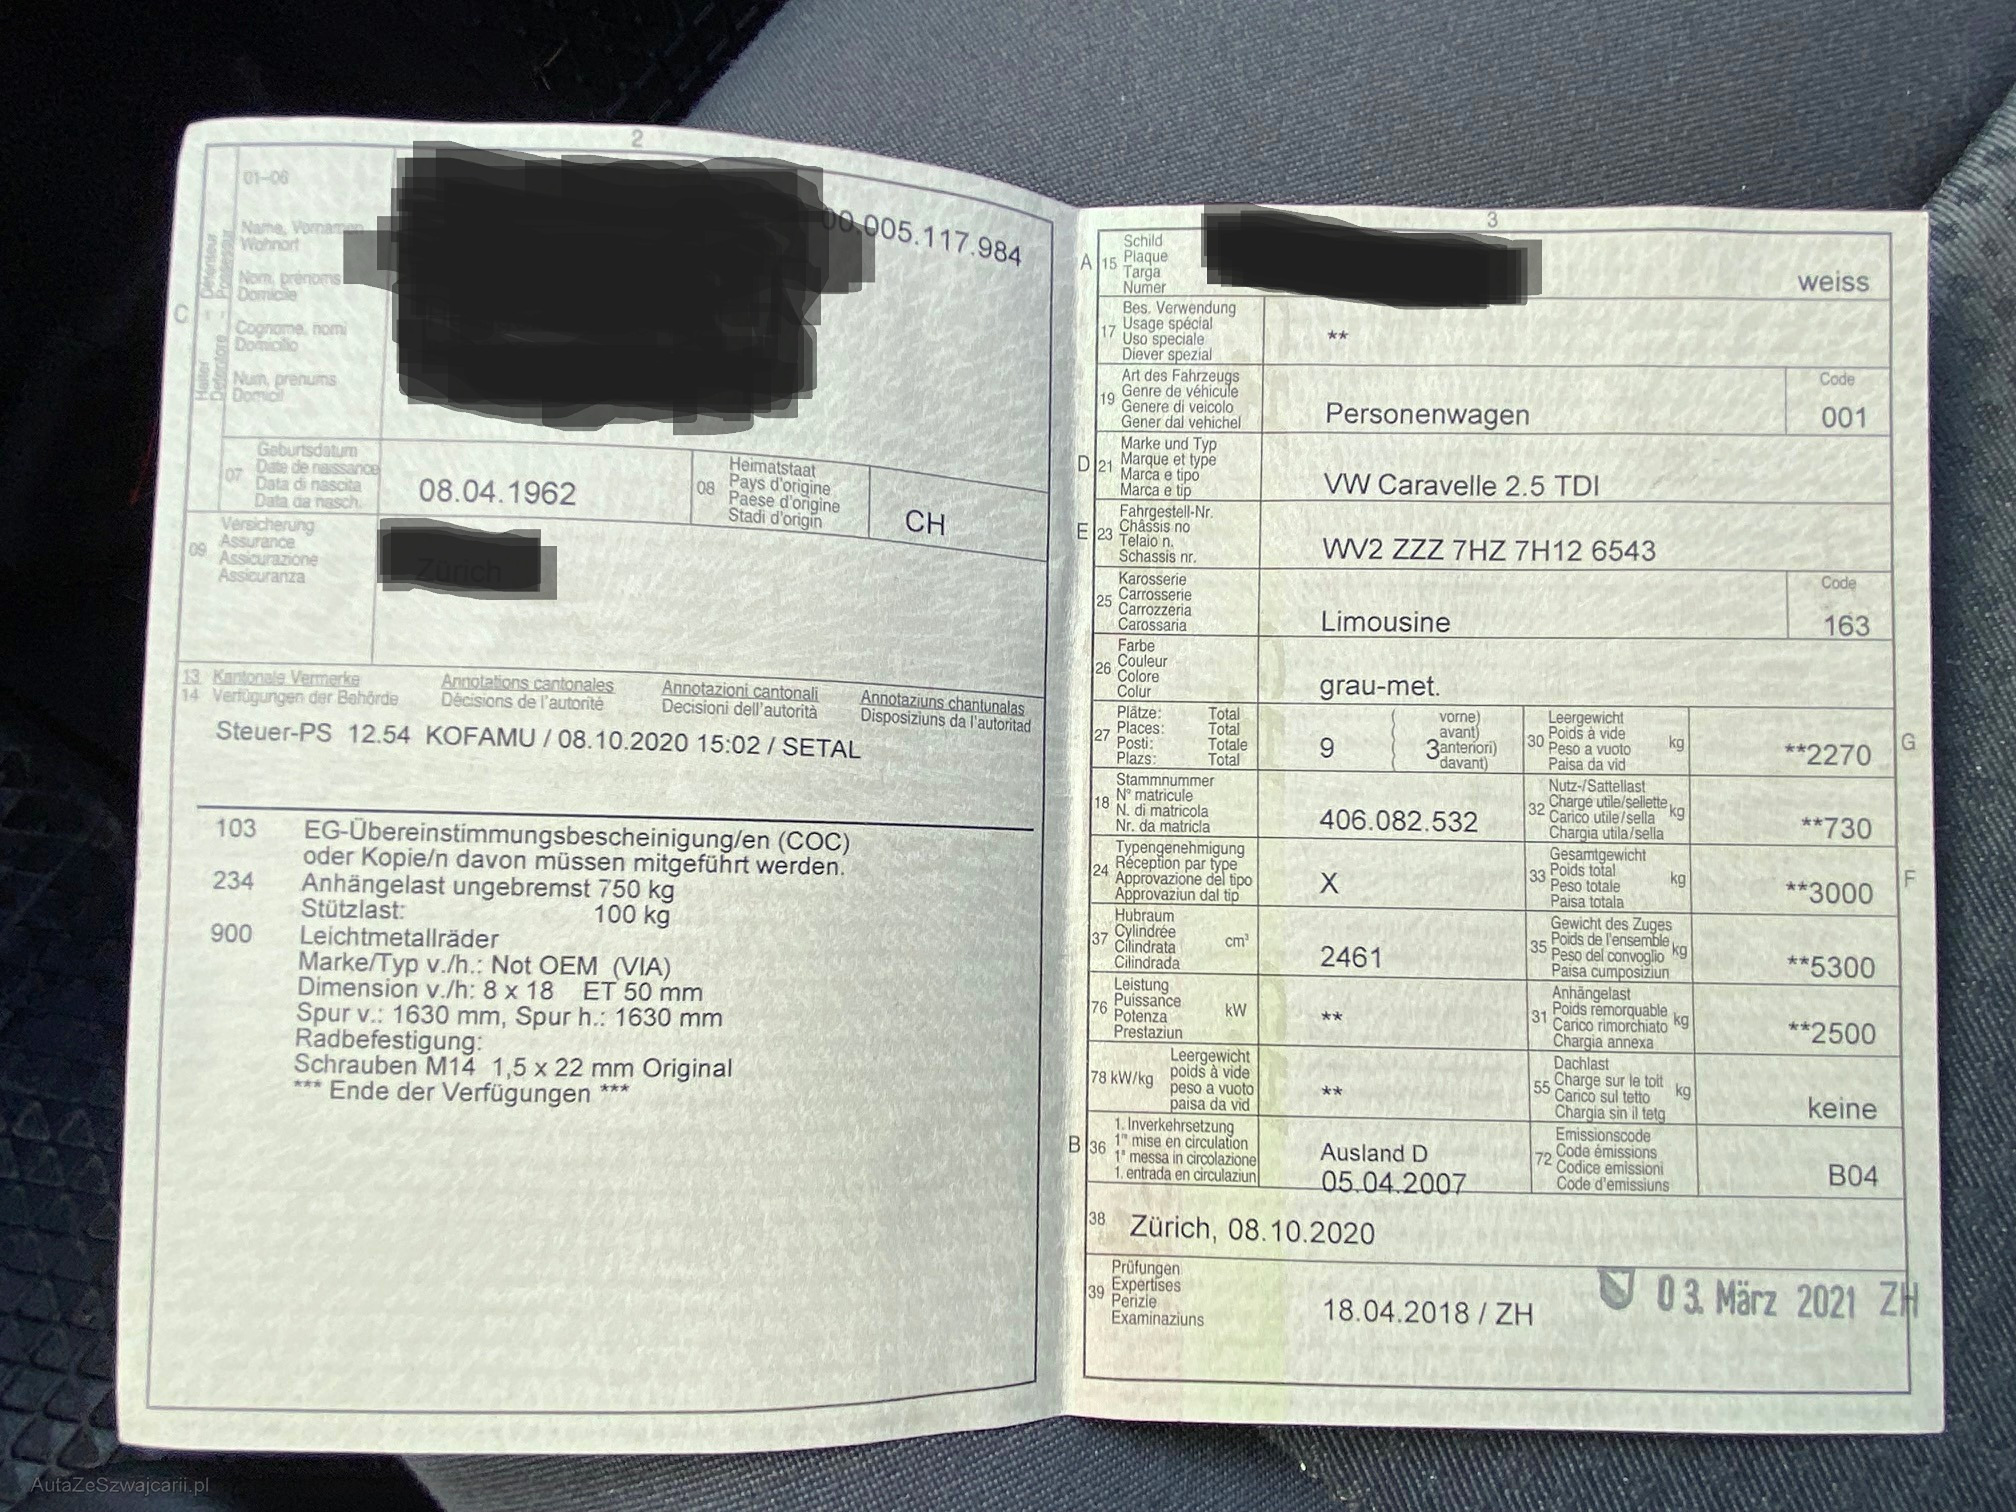 2
01–06
Name, Vornamen
Wohnort
Nom, prénoms
Domicile
Cognome, nomi
Domicilio
Num, prenums
Domicil
C
00.005.117.984
07
Geburtsdatum
Date de naissance
Data di nascita
Data da nasch.
08.04.1962
08
Heimatstaat
Pays d'origine
Paese d'origine
Stadi d'origin
CH
09
Versicherung
Assurance
Assicurazione
Assicuranza
Zürich
13 Kantonale Vermerke Annotations cantonales Annotazioni cantonali Annotaziuns chantunalas
14 Verfügungen der Behörde Décisions de l'autorité Decisioni dell'autorità Disposiziuns da l'autoritad
Steuer-PS 12.54 KOFAMU / 08.10.2020 15:02 / SETAL
103 EG-Übereinstimmungsbescheinigung/en (COC)
oder Kopie/n davon müssen mitgeführt werden.
234 Anhängelast ungebremst 750 kg
Stützlast: 100 kg
900 Leichtmetallräder
Marke/Typ v./h.: Not OEM (VIA)
Dimension v./h: 8 x 18 ET 50 mm
Spur v.: 1630 mm, Spur h.: 1630 mm
Radbefestigung:
Schrauben M14 1,5 x 22 mm Original
*** Ende der Verfügungen ***
3
A 15
Schild
Plaque
Targa
Numer
weiss
17
Bes. Verwendung
Usage spécial
Uso speciale
Diever spezial
**
19
Art des Fahrzeugs
Genre de véhicule
Genere di veicolo
Gener dal vehichel
Personenwagen
Code
001
D 21
Marke und Typ
Marque et type
Marca e tipo
Marca e tip
VW Caravelle 2.5 TDI
E 23
Fahrgestell-Nr.
Châssis no
Telaio n.
Schassis nr.
WV2 ZZZ 7HZ 7H12 6543
25
Karosserie
Carrosserie
Carrozzeria
Carossaria
Limousine
Code
163
26
Farbe
Couleur
Colore
Colur
grau-met.
27
Plätze: Total
Places: Total
Posti: Totale
Plazs: Total
9
vorne)
avant)
3 anteriori)
davant)
30
Leergewicht
Poids à vide
Peso a vuoto
Paisa da vid
kg
**2270
G
18
Stammnummer
N° matricule
N. di matricola
Nr. da matricla
406.082.532
32
Nutz-/Sattellast
Charge utile/sellette
Carico utile/sella
Chargia utila/sella
kg
**730
24
Typengenehmigung
Réception par type
Approvazione del tipo
Approvaziun dal tip
X
33
Gesamtgewicht
Poids total
Peso totale
Paisa totala
kg
**3000
F
37
Hubraum
Cylindrée
Cilindrata
Cilindrada
cm³
2461
35
Gewicht des Zuges
Poids de l'ensemble
Peso del convoglio
Paisa cumposiziun
kg
**5300
76
Leistung
Puissance
Potenza
Prestaziun
kW
**
31
Anhängelast
Poids remorquable
Carico rimorchiato
Chargia annexa
kg
**2500
78 kW/kg
Leergewicht
poids à vide
peso a vuoto
paisa da vid
**
55
Dachlast
Charge sur le toit
Carico sul tetto
Chargia sin il tetg
kg
keine
B 36
1. Inverkehrsetzung
1re mise en circulation
1a messa in circolazione
1. entrada en circulaziun
Ausland D
05.04.2007
72
Emissionscode
Code émissions
Codice emissioni
Code d'emissiuns
B04
38
Zürich, 08.10.2020
39
Prüfungen
Expertises
Perizie
Examinaziuns
18.04.2018 / ZH
03. März 2021 ZH
AutaZeSzwajcarii.pl